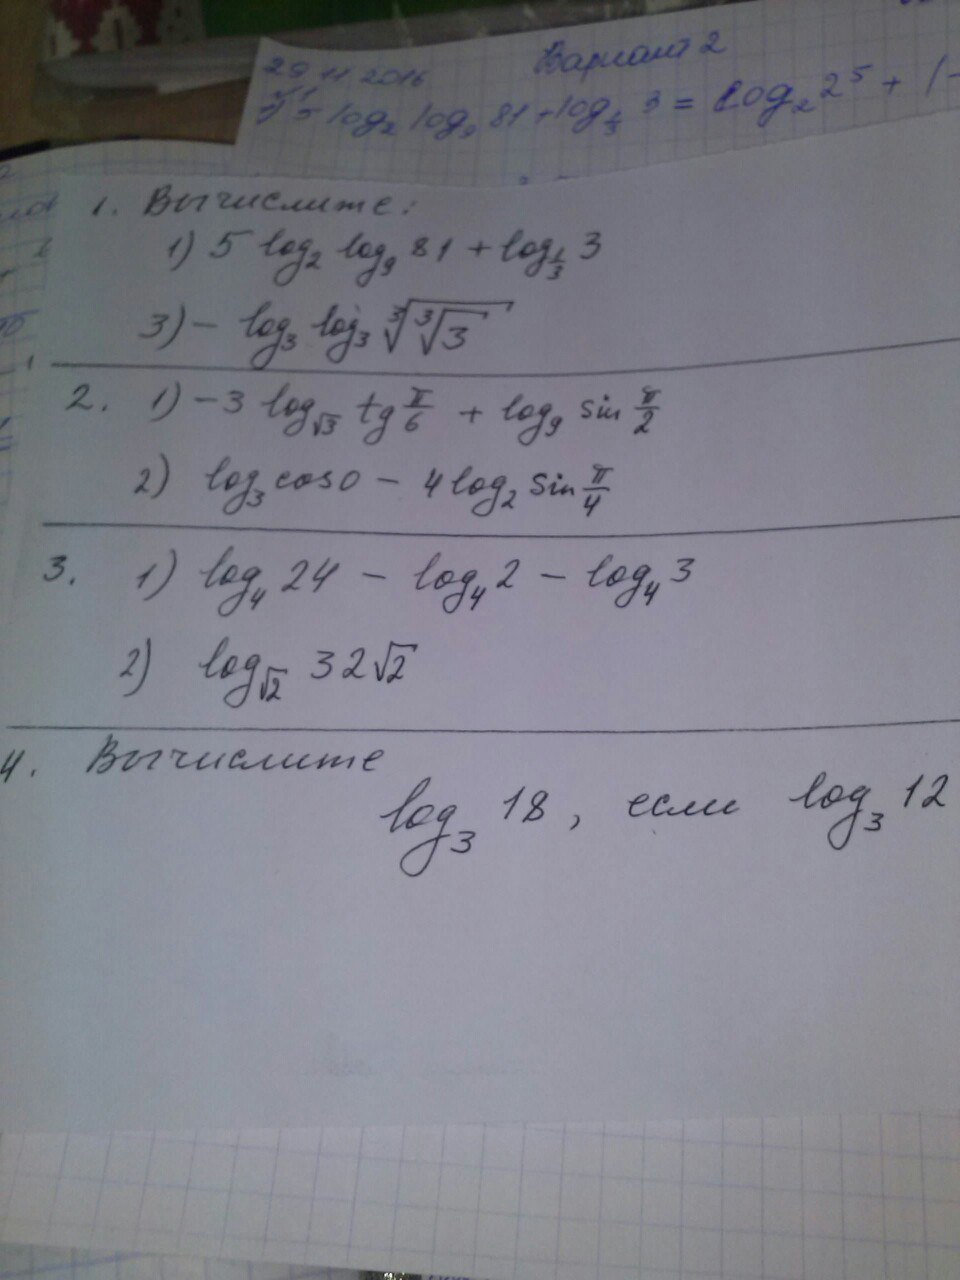 29.11.2016 Вариант 2
5 log₂ log₉ 81 + log_{1/3} 3 = log₂ 2⁵ + (-
1. Вычислите:
1) 5 log₂ log₉ 81 + log_{1/3} 3
3) – log₃ log₃ ∛∛3
2. 1) –3 log_{√3} tg π/6 + log₉ sin π/2
2) log₃ cos 0 – 4 log₂ sin π/4
3. 1) log₄ 24 – log₄ 2 – log₄ 3
2) log_{√2} 32√2
4. Вычислите
log₃ 18, если log₃ 12